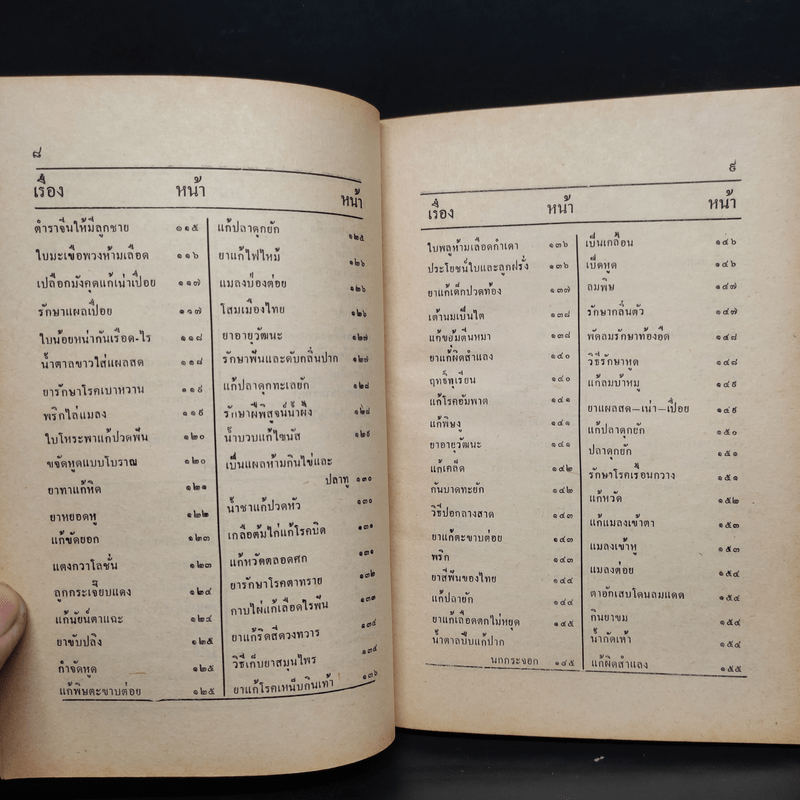 ๘
เรื่อง หน้า
ตำราจีนให้มีลูกชาย ๑๑๕
ใบมะเขือพวงห้ามเลือด ๑๑๖
เปลือกมังคุดแก้เน่าเปื่อย ๑๑๗
รักษาแผลเปื่อย ๑๑๗
ใบน้อยหน่ากันเรือด-ไร ๑๑๘
น้ำตาลขาวใส่แผลสด ๑๑๘
ยารักษาโรคเบาหวาน ๑๑๙
พริกไล่แมลง ๑๑๙
ใบโหระพาแก้ปวดฟัน ๑๒๐
ขจัดหูดแบบโบราณ ๑๒๐
ยาทาแก้หิด ๑๒๑
ยาหยอดหู ๑๒๒
แก้ขัดยอก ๑๒๓
แตงกวาโลชั่น
ลูกกระเจี๊ยบแดง ๑๒๔
แก้นัยน์ตาแฉะ ๑๒๔
ยาขับปลิง ๑๒๕
กำจัดหูด ๑๒๕
แก้พิษตะขาบต่อย ๑๒๕
หน้า
แก้ปลาดุกยัก ๑๒๕
ยาแก้ไฟไหม้ ๑๒๖
แมลงป่องต่อย ๑๒๖
โสมเมืองไทย ๑๒๖
ยาอายุวัฒนะ ๑๒๗
รักษาฟันและดับกลิ่นปาก ๑๒๗
แก้ปลาดุกทะเลยัก ๑๒๘
รักษาฝีพิสูจน์น้ำผึ้ง ๑๒๘
น้ำบวบแก้ไซนัส ๑๒๙
เป็นแผลห้ามกินไข่และ
ปลาทู ๑๓๐
น้ำชาแก้ปวดหัว ๑๓๐
เกลือต้มไก่แก้โรคบิด ๑๓๑
แก้หวัดตลอดศก ๑๓๑
ยารักษาโรคตาทราย ๑๓๒
กาบไผ่แก้เลือดไรฟัน ๑๓๓
ยาแก้ริดสีดวงทวาร ๑๓๔
วิธีเก็บยาสมุนไพร ๑๓๔
ยาแก้โรคเหน็บกินเท้า ๑๓๖
๙
เรื่อง หน้า
ใบพลูห้ามเลือดกำเดา ๑๓๖
ประโยชน์ใบและลูกฝรั่ง ๑๓๖
ยาแก้เด็กปวดท้อง ๑๓๗
เต้านมเป็นไต ๑๓๘
แก้ขย้ำตีนหมา ๑๓๘
ยาแก้ผิดสำแลง ๑๔๐
ฤทธิ์ทุเรียน ๑๔๐
แก้โรคอัมพาต ๑๔๑
แก้พิษงู ๑๔๑
ยาอายุวัฒนะ ๑๔๑
แก้เคล็ด ๑๔๒
กันบาดทะยัก ๑๔๒
วิธีปอกลางสาด ๑๔๓
ยาแก้ตะขาบต่อย ๑๔๓
พริก ๑๔๓
ยาสีฟันของไทย ๑๔๔
แก้ปลายัก ๑๔๔
ยาแก้เลือดตกไม่หยุด ๑๔๕
น้ำตาลปีบแก้ปาก
นกกระจอก ๑๔๕
หน้า
เป็นเกลื้อน ๑๔๖
เป็ดหูด ๑๔๖
ลมพิษ ๑๔๗
รักษากลิ่นตัว ๑๔๗
พัดลมรักษาท้องอืด ๑๔๗
วิธีรักษาหูด ๑๔๘
แก้ลมบ้าหมู ๑๔๙
ยาแผลสด-เน่า-เปื่อย ๑๔๙
แก้ปลาดุกยัก ๑๕๐
ปลาดุกยัก ๑๕๑
รักษาโรคเรื้อนกวาง ๑๕๑
แก้หวัด ๑๕๒
แก้แมลงเข้าตา ๑๕๓
แมลงเข้าหู ๑๕๓
แมลงต่อย ๑๕๔
ตาอักเสบโดนลมแดด ๑๕๔
กินยาขม
น้ำกัดเท้า ๑๕๔
แก้ผิดสำแลง ๑๕๕